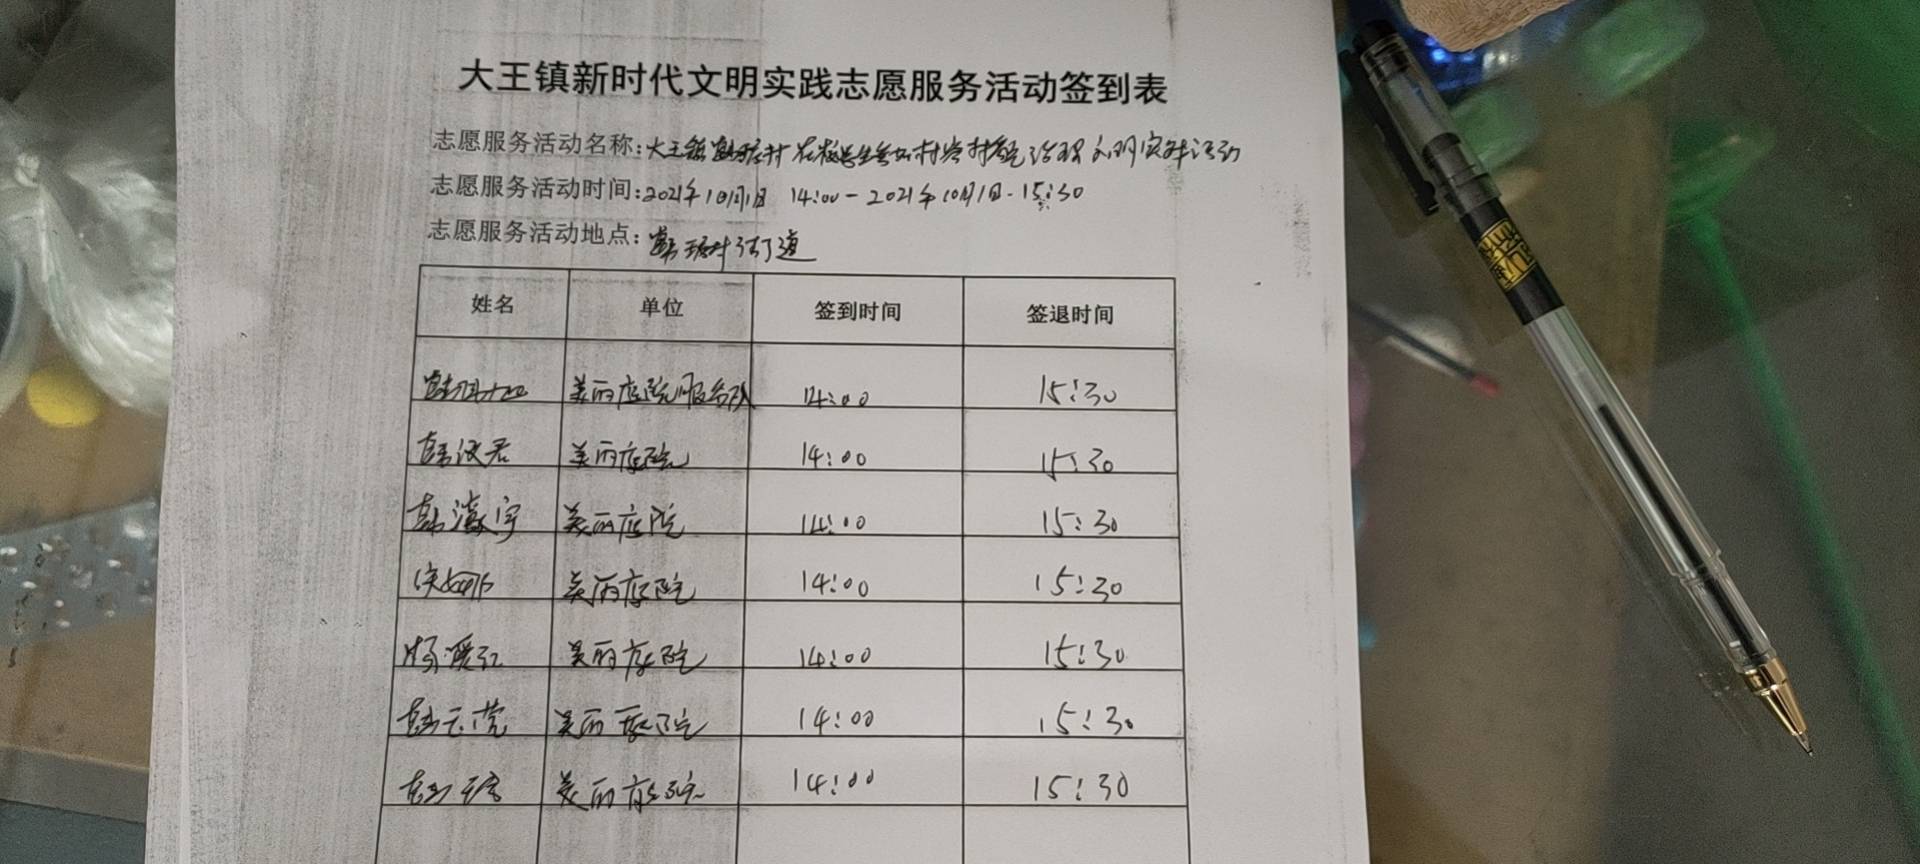 大王镇新时代文明实践志愿服务活动签到表
志愿服务活动名称:大王镇 村 在校学生参与村容村貌治理文明实践活动
志愿服务活动时间:2021年10月1日 14:00-2021年10月1日.15:30
志愿服务活动地点: 村街道
姓名 单位 签到时间 签退时间
美丽庭院服务队 14:00 15:30
韩汶君 美丽庭院 14:00 15:30
韩瀛宇 美丽庭院 14:00 15:30
美丽庭院 14:00 15:30
杨爱红 美丽庭院 14:00 15:30
韩云荣 美丽庭院 14:00 15:30
美丽庭院 14:00 15:30